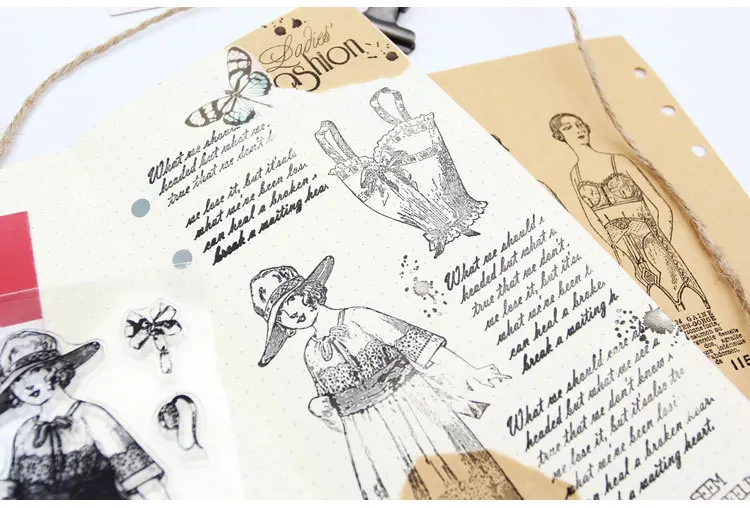 Ladies'
Fashion
What we shou
headed but what we
true that we don't k
we lose it, but it'sals
what we've been los
can heal a broken
break a waiting hear
What we should
headed but what
true that we don't
we lose it, but it'sa
what we've been l
can heal a broke
break a waiting h
What we should
headed but what we see a
true that we don't know
we lose it, but it'salso tr
what we've been lost
can heal a broken hear
break a waiting heart.
GAINE
115